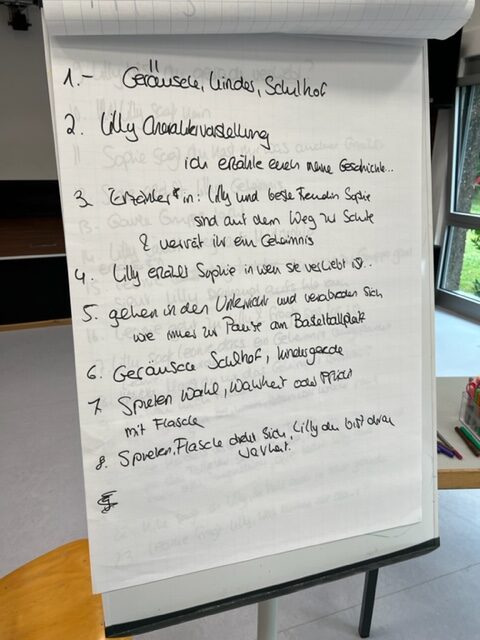 1.- Geräusche, Kindes, Schulhof
2. Lilly Charaktervorstellung
ich erzähle euch meine Geschichte..
3. Erzähler*in: Lilly und beste Freundin Sophie
sind auf dem Weg zur Schule
& verrät ihr ein Geheimnis
4. Lilly erzählt Sophie in wen sie verliebt ist..
5. gehen in den Unterricht und verabreden sich
wie immer zur Pause am Basketballplatz
6. Geräusche Schulhof,
7. Spielen Wahl, Wahrheit oder Pflicht
mit Flasche
8. Spielen, Flasche dreht sich, Lilly du bist dran